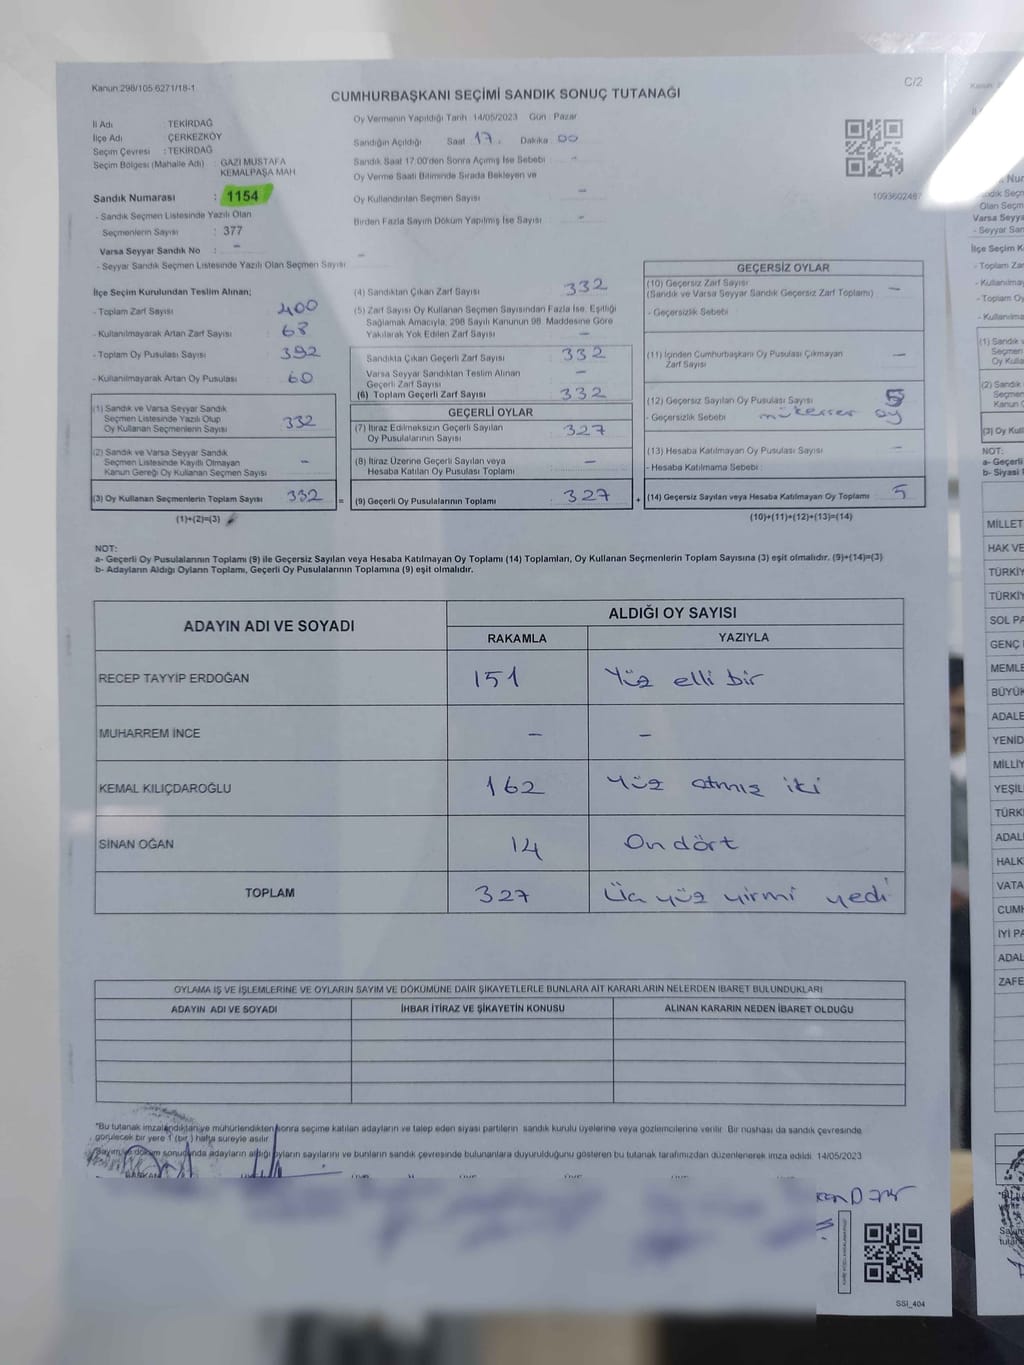 Kanun 298/105 6271/18-1
C/2
CUMHURBAŞKANI SEÇİMİ SANDIK SONUÇ TUTANAĞI
İl Adı : TEKİRDAĞ
İlçe Adı : ÇERKEZKÖY
Seçim Çevresi : TEKİRDAĞ
Seçim Bölgesi (Mahalle Adı) : GAZİ MUSTAFA
KEMALPAŞA MAH
Sandık Numarası : 1154
- Sandık Seçmen Listesinde Yazılı Olan
Seçmenlerin Sayısı : 377
Varsa Seyyar Sandık No : -
- Seyyar Sandık Seçmen Listesinde Yazılı Olan Seçmen Sayısı -
Oy Vermenin Yapıldığı Tarih 14/05/2023 Gün : Pazar
Sandığın Açıldığı Saat 17. Dakika 00
Sandık Saat 17:00'den Sonra Açımış İse Sebebi -
Oy Verme Saati Bitiminde Sırada Bekleyen ve
Oy Kullandırılan Seçmen Sayısı -
Birden Fazla Sayım Döküm Yapılmış İse Sayısı -
1093602487
İlçe Seçim Kurulundan Teslim Alınan;
- Toplam Zarf Sayısı 400
- Kullanılmayarak Artan Zarf Sayısı 68
- Toplam Oy Pusulası Sayısı 392
- Kullanılmayarak Artan Oy Pusulası 60
(1) Sandık ve Varsa Seyyar Sandık
Seçmen Listesinde Yazılı Olup
Oy Kullanan Seçmenlerin Sayısı 332
(2) Sandık ve Varsa Seyyar Sandık
Seçmen Listesinde Kayıtlı Olmayan
Kanun Gereği Oy Kullanan Seçmen Sayısı -
(3) Oy Kullanan Seçmenlerin Toplam Sayısı 332
(1)+(2)=(3)
(4) Sandıktan Çıkan Zarf Sayısı 332
(5) Zarf Sayısı Oy Kullanan Seçmen Sayısından Fazla İse, Eşitliği
Sağlamak Amacıyla, 298 Sayılı Kanunun 98. Maddesine Göre
Yakılarak Yok Edilen Zarf Sayısı -
Sandıkta Çıkan Geçerli Zarf Sayısı 332
Varsa Seyyar Sandıktan Teslim Alınan
Geçerli Zarf Sayısı -
(6) Toplam Geçerli Zarf Sayısı 332
GEÇERLİ OYLAR
(7) İtiraz Edilmeksizin Geçerli Sayılan
Oy Pusulalarının Sayısı 327
(8) İtiraz Üzerine Geçerli Sayılan veya
Hesaba Katılan Oy Pusulası Toplamı -
= (9) Geçerli Oy Pusulalarının Toplamı 327 +
GEÇERSİZ OYLAR
(10) Geçersiz Zarf Sayısı -
(Sandık ve Varsa Seyyar Sandık Geçersiz Zarf Toplamı)
- Geçersizlik Sebebi
(11) İçinden Cumhurbaşkanı Oy Pusulası Çıkmayan
Zarf Sayısı -
(12) Geçersiz Sayılan Oy Pusulası Sayısı 5
- Geçersizlik Sebebi mükerrer oy
(13) Hesaba Katılmayan Oy Pusulası Sayısı -
- Hesaba Katılmama Sebebi :
(14) Geçersiz Sayılan veya Hesaba Katılmayan Oy Toplamı 5
(10)+(11)+(12)+(13)=(14)
NOT:
a- Geçerli Oy Pusulalarının Toplamı (9) ile Geçersiz Sayılan veya Hesaba Katılmayan Oy Toplamı (14) Toplamları, Oy Kullanan Seçmenlerin Toplam Sayısına (3) eşit olmalıdır. (9)+(14)=(3)
b- Adayların Aldığı Oyların Toplamı, Geçerli Oy Pusulalarının Toplamına (9) eşit olmalıdır.
ADAYIN ADI VE SOYADI
ALDIĞI OY SAYISI
RAKAMLA YAZIYLA
RECEP TAYYİP ERDOĞAN 151 Yüz elli bir
MUHARREM İNCE - -
KEMAL KILIÇDAROĞLU 162 Yüz atmış iki
SİNAN OĞAN 14 On dört
TOPLAM 327 Üç yüz yirmi yedi
OYLAMA İŞ VE İŞLEMLERİNE VE OYLARIN SAYIM VE DÖKÜMÜNE DAİR ŞİKAYETLERLE BUNLARA AİT KARARLARIN NELERDEN İBARET BULUNDUKLARI
ADAYIN ADI VE SOYADI İHBAR İTİRAZ VE ŞİKAYETİN KONUSU ALINAN KARARIN NEDEN İBARET OLDUĞU
*Bu tutanak imzalandıktan ve mühürlendikten sonra seçime katılan adayların ve talep eden siyasi partilerin sandık kurulu üyelerine veya gözlemcilerine verilir. Bir nüshası da sandık çevresinde
görülecek bir yere 1 (bir) hafta süreyle asılır.
Sayım ve döküm sonucunda adayların aldığı oyların sayılarını ve bunların sandık çevresinde bulunanlara duyurulduğunu gösteren bu tutanak tarafımızdan düzenlenerek imza edildi. 14/05/2023
SSİ_404
MİLLET
HAK VE
TÜRKİY
TÜRKİY
SOL PA
GENÇ
MEMLE
BÜYÜK
ADALE
YENİD
MİLLİY
YEŞİL
TÜRK
ADAL
HALK
VATA
CUMH
İYİ PA
ADAL
ZAFE